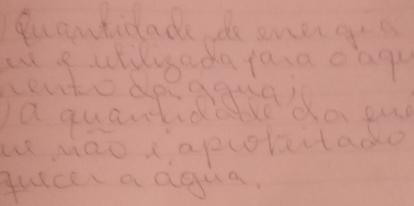 ) Quantidade de energia
ue e utilizada para o aqu
mento da agua;
) a quantidade da ene
ue não é aproveitado
quecer a agua.